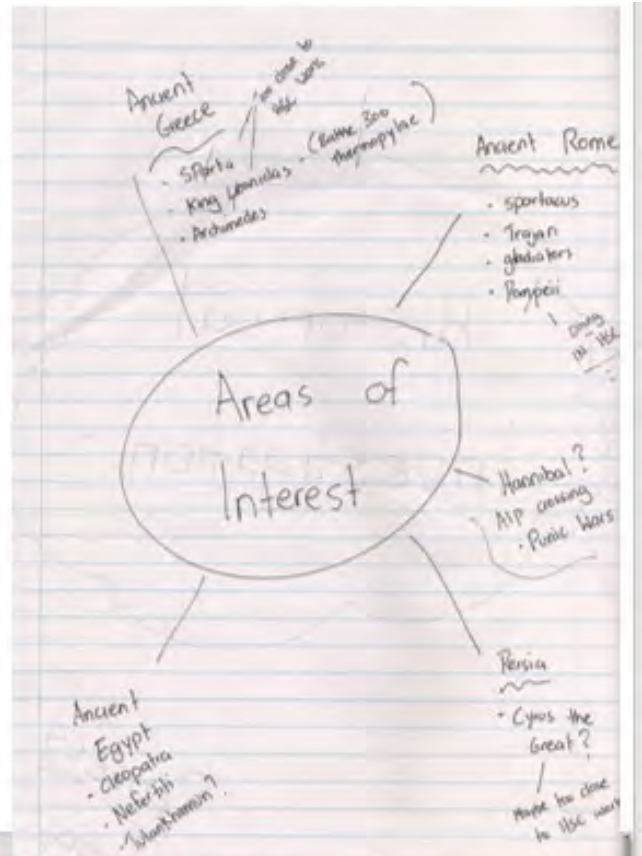 Ancient
Greece
too close to
HSC work
• Sparta
• King Leonidas - (Battle 300
thermopylae)
• Archimedes
Ancient Rome
• spartacus
• Trajan
• gladiators
• Pompeii
doing
in HSC
Areas of
Interest
Hannibal?
Alp crossing
• Punic Wars
Persia
• Cyrus the
Great?
Maybe too close
to HSC work
Ancient
Egypt
• Cleopatra
• Nefertiti